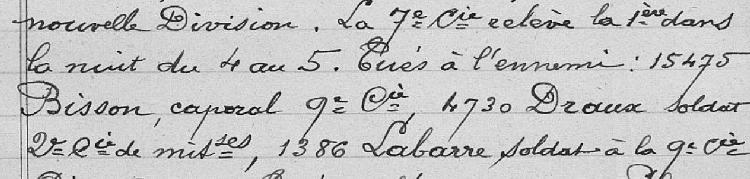 nouvelle Division. La 7e Cie relève la 1ère dans
la nuit du 4 au 5. Tués à l'ennemi : 15475
Bisson, caporal 9e Cie, 4730 Draux soldat
2e Cie de mitses, 1386 Labarre, soldat à la 9e Cie